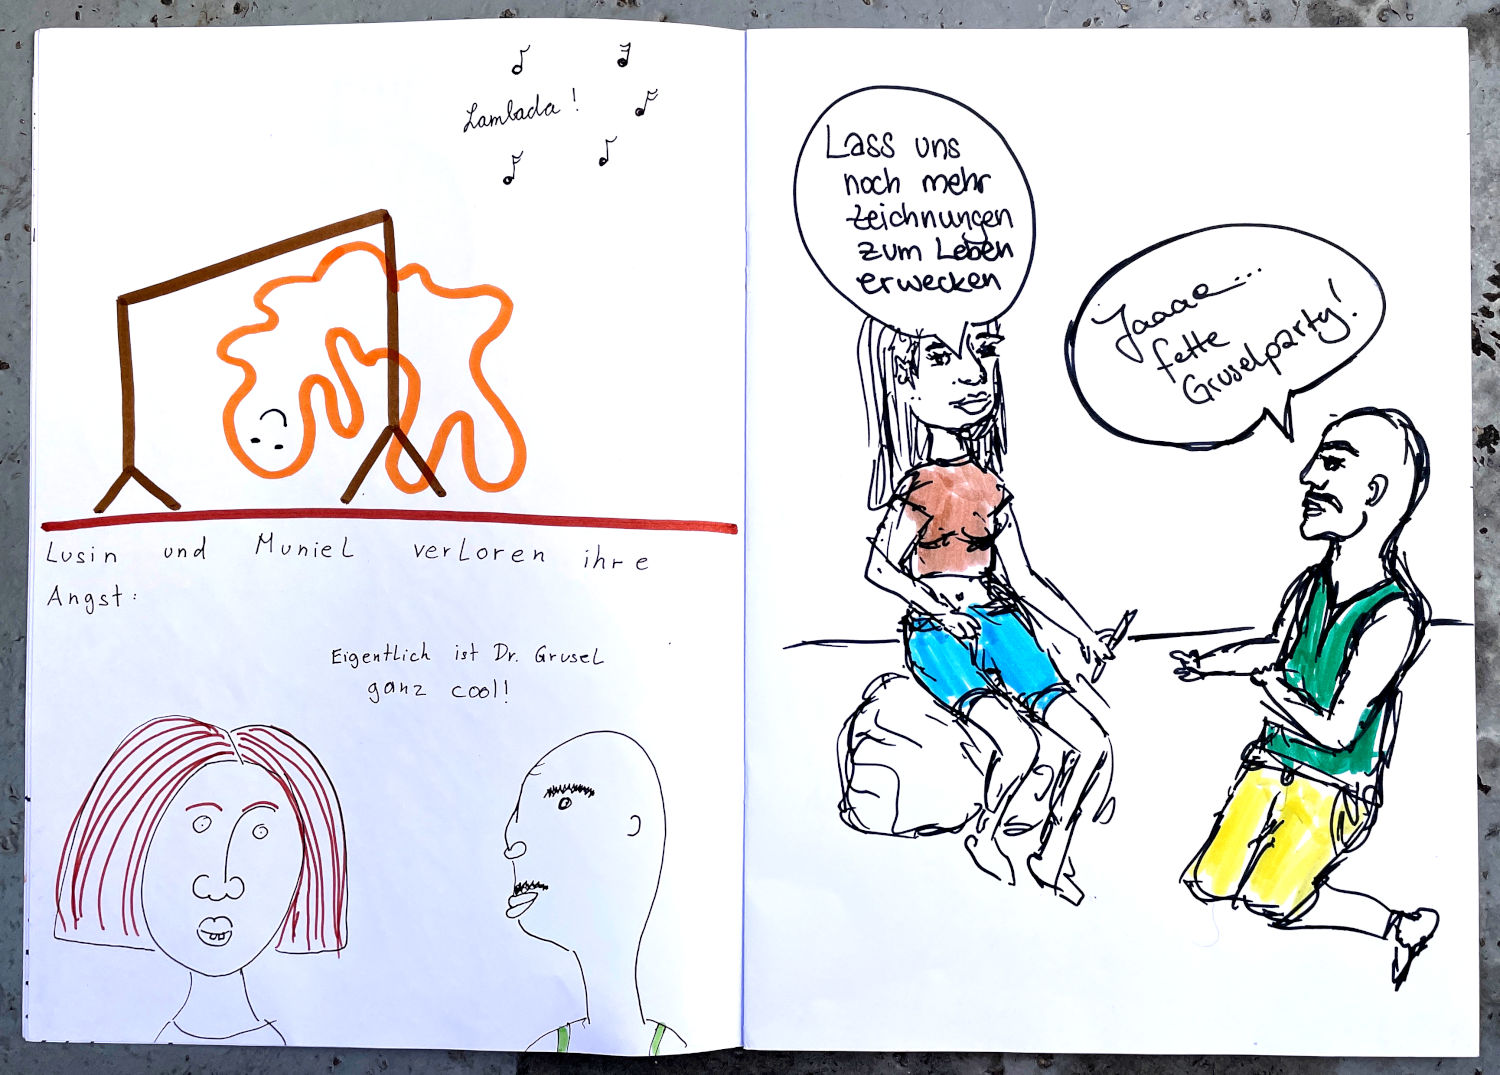 Lambada!
Lusin und Muniel verloren ihre
Angst:
Eigentlich ist Dr. Grusel
ganz cool!
Lass uns
noch mehr
zeichnungen
zum Leben
erwecken
Jaaaa...
fette
Gruselparty!